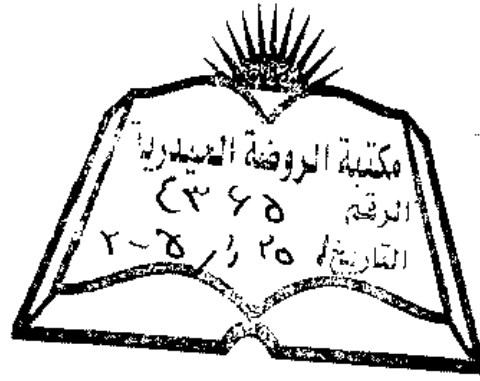 مكتبة الروضة الحيدرية
الرقم ٤٣٦٥
التاريخ